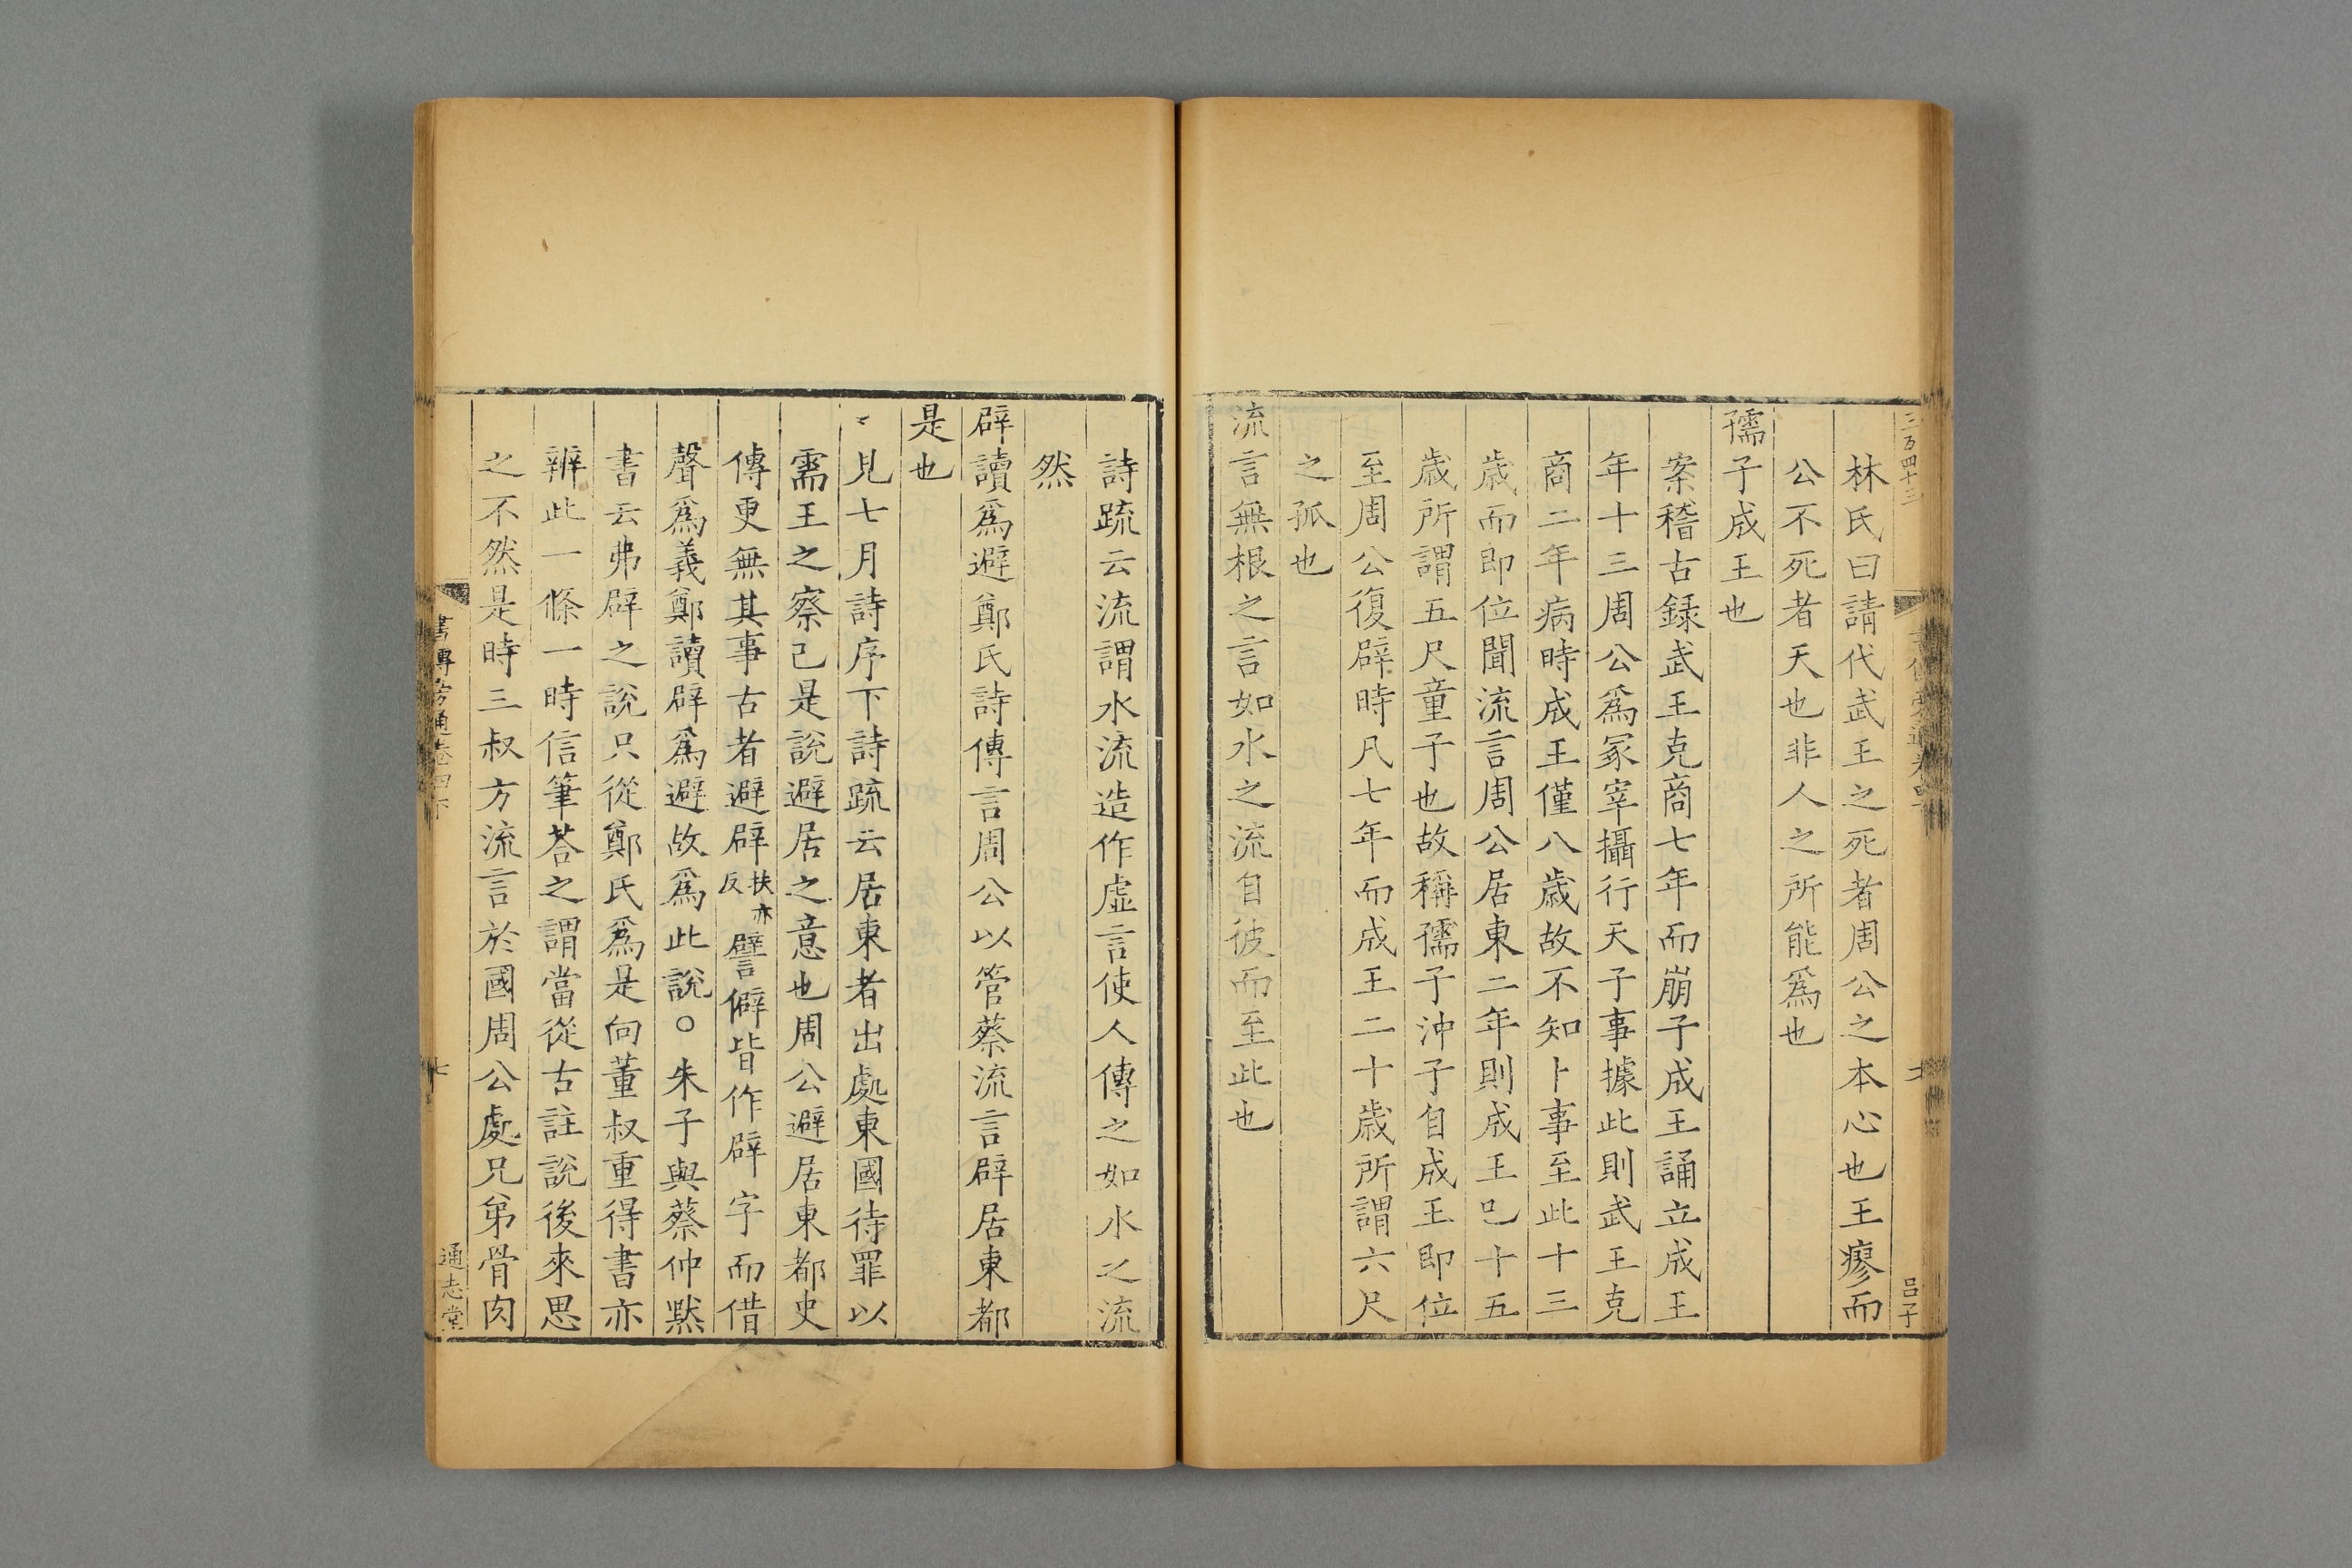 林氏曰請代武王之死者周公之本心也王瘳而
公不死者天也非人之所能爲也
孺子成王也
案稽古録武王克商七年而崩子成王誦立成王
年十三周公爲冢宰攝行天子事據此則武王克
商二年病時成王僅八歲故不知卜事至此十三
歲而即位聞流言周公居東二年則成王已十五
歲所謂五尺童子也故稱孺子沖子自成王即位
至周公復辟時凡七年而成王二十歲所謂六尺
之孤也
流言無根之言如水之流自彼而至此也
詩疏云流謂水流造作虛言使人傳之如水之流
然
辟讀爲避鄭氏詩傳言周公以管蔡流言辟居東都
是也
見七月詩序下詩疏云居東者出處東國待罪以
需王之察己是說避居之意也周公避居東都史
傳更無其事古者避辟扶亦反譬僻皆作辟字而借
聲爲義鄭讀辟爲避故爲此說○朱子與蔡仲默
書云弗辟之說只從鄭氏爲是向董叔重得書亦
辨此一條一時信筆荅之謂當從古註說後來思
之不然是時三叔方流言於國周公處兄弟骨肉
書傳旁通卷四下
七
通志堂